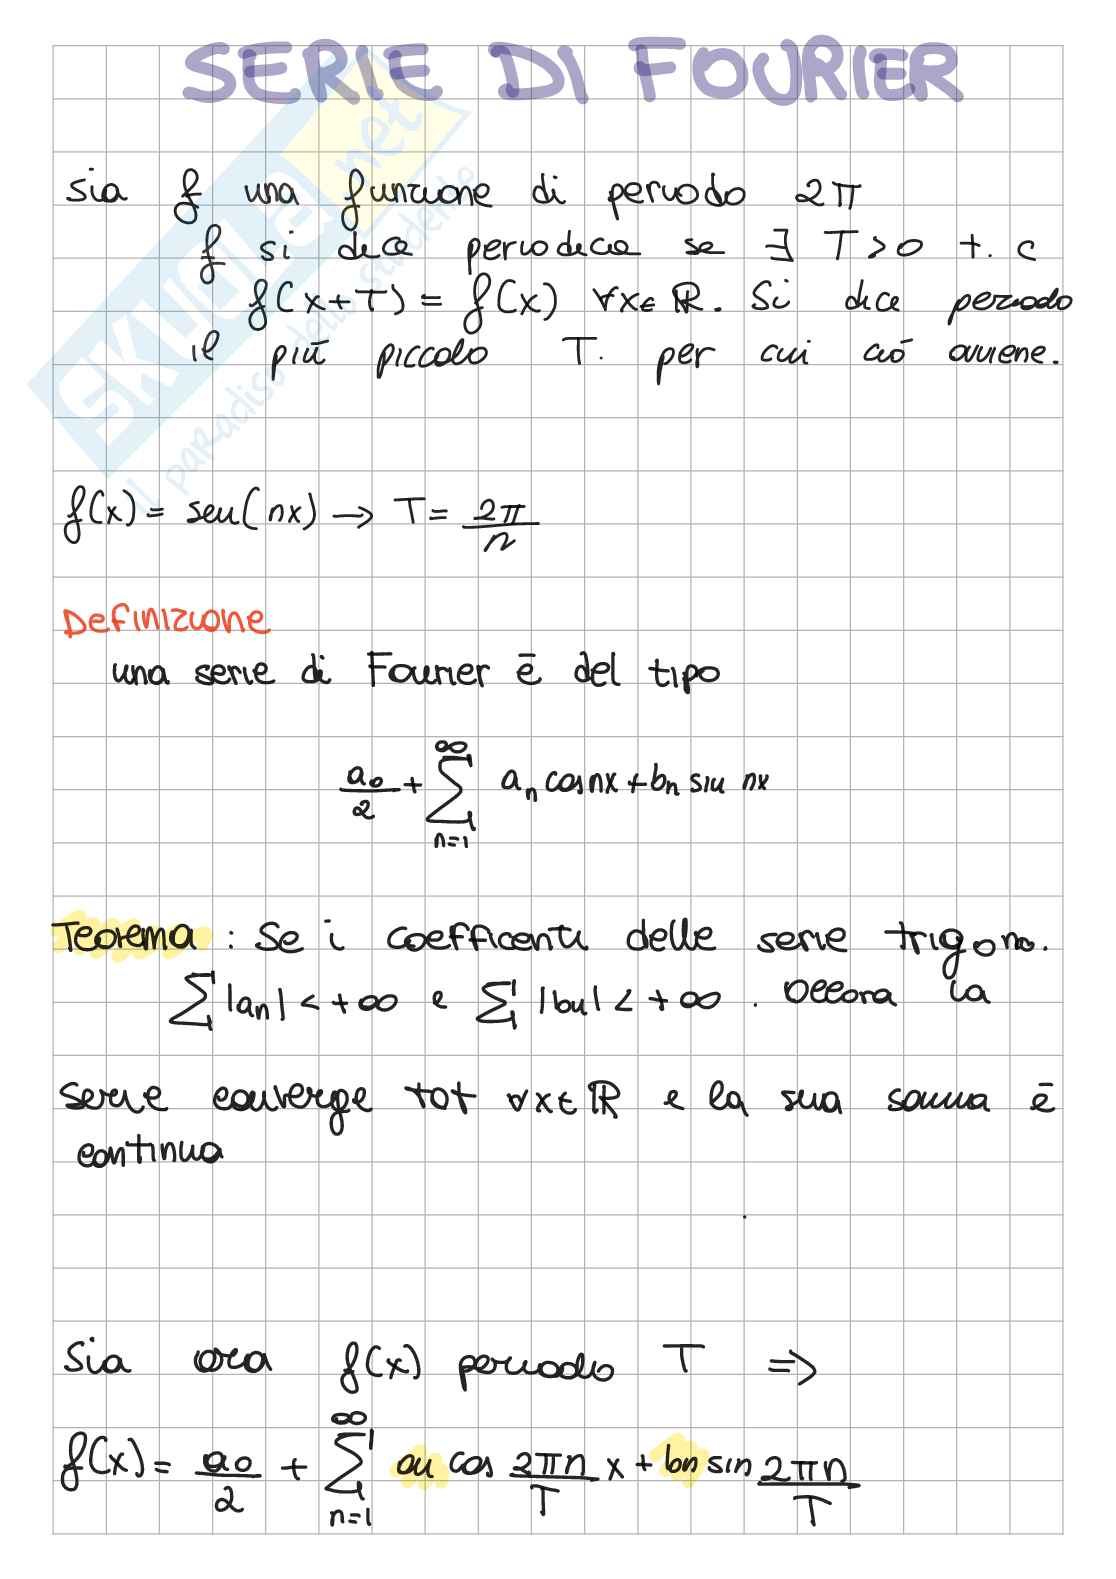 SERIE DI FOURIER
sia f una funzione di periodo 2π
f si dice periodica se ∃ T>0 t.c
f(x+T) = f(x) ∀x∈ℝ. Si dice periodo
il più piccolo T. per cui ciò avviene.
f(x) = sen(nx) → T = 2π/n
Definizione
una serie di Fourier è del tipo
a₀/2 + ∑_{n=1}^{∞} aₙ cos nx + bₙ sin nx
Teorema : Se i coefficenti delle serie trigono.
∑|an| < +∞ e ∑|bn| < +∞ . Allora la
serie converge tot ∀x∈ℝ e la sua somma è
continua
Sia ora f(x) periodo T ⇒
f(x) = a₀/2 + ∑_{n=1}^{∞} an cos 2πn/T x + bn sin 2πn/T
SKUOLA.net
il paradiso dello studente